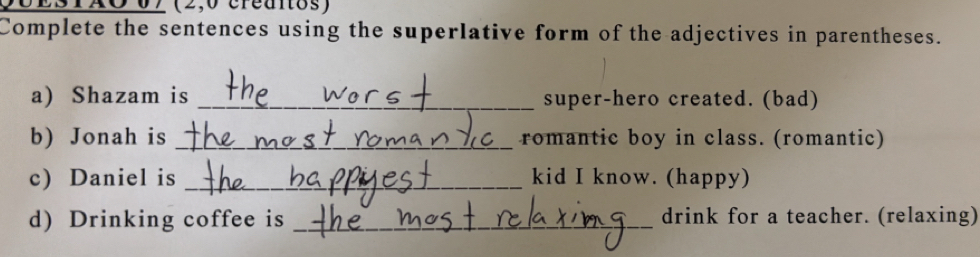 QUESTÃO 07 (2,0 créditos)
Complete the sentences using the superlative form of the adjectives in parentheses.
a) Shazam is the worst super-hero created. (bad)
b) Jonah is the most romantic romantic boy in class. (romantic)
c) Daniel is the happyest kid I know. (happy)
d) Drinking coffee is the most relaximg drink for a teacher. (relaxing)